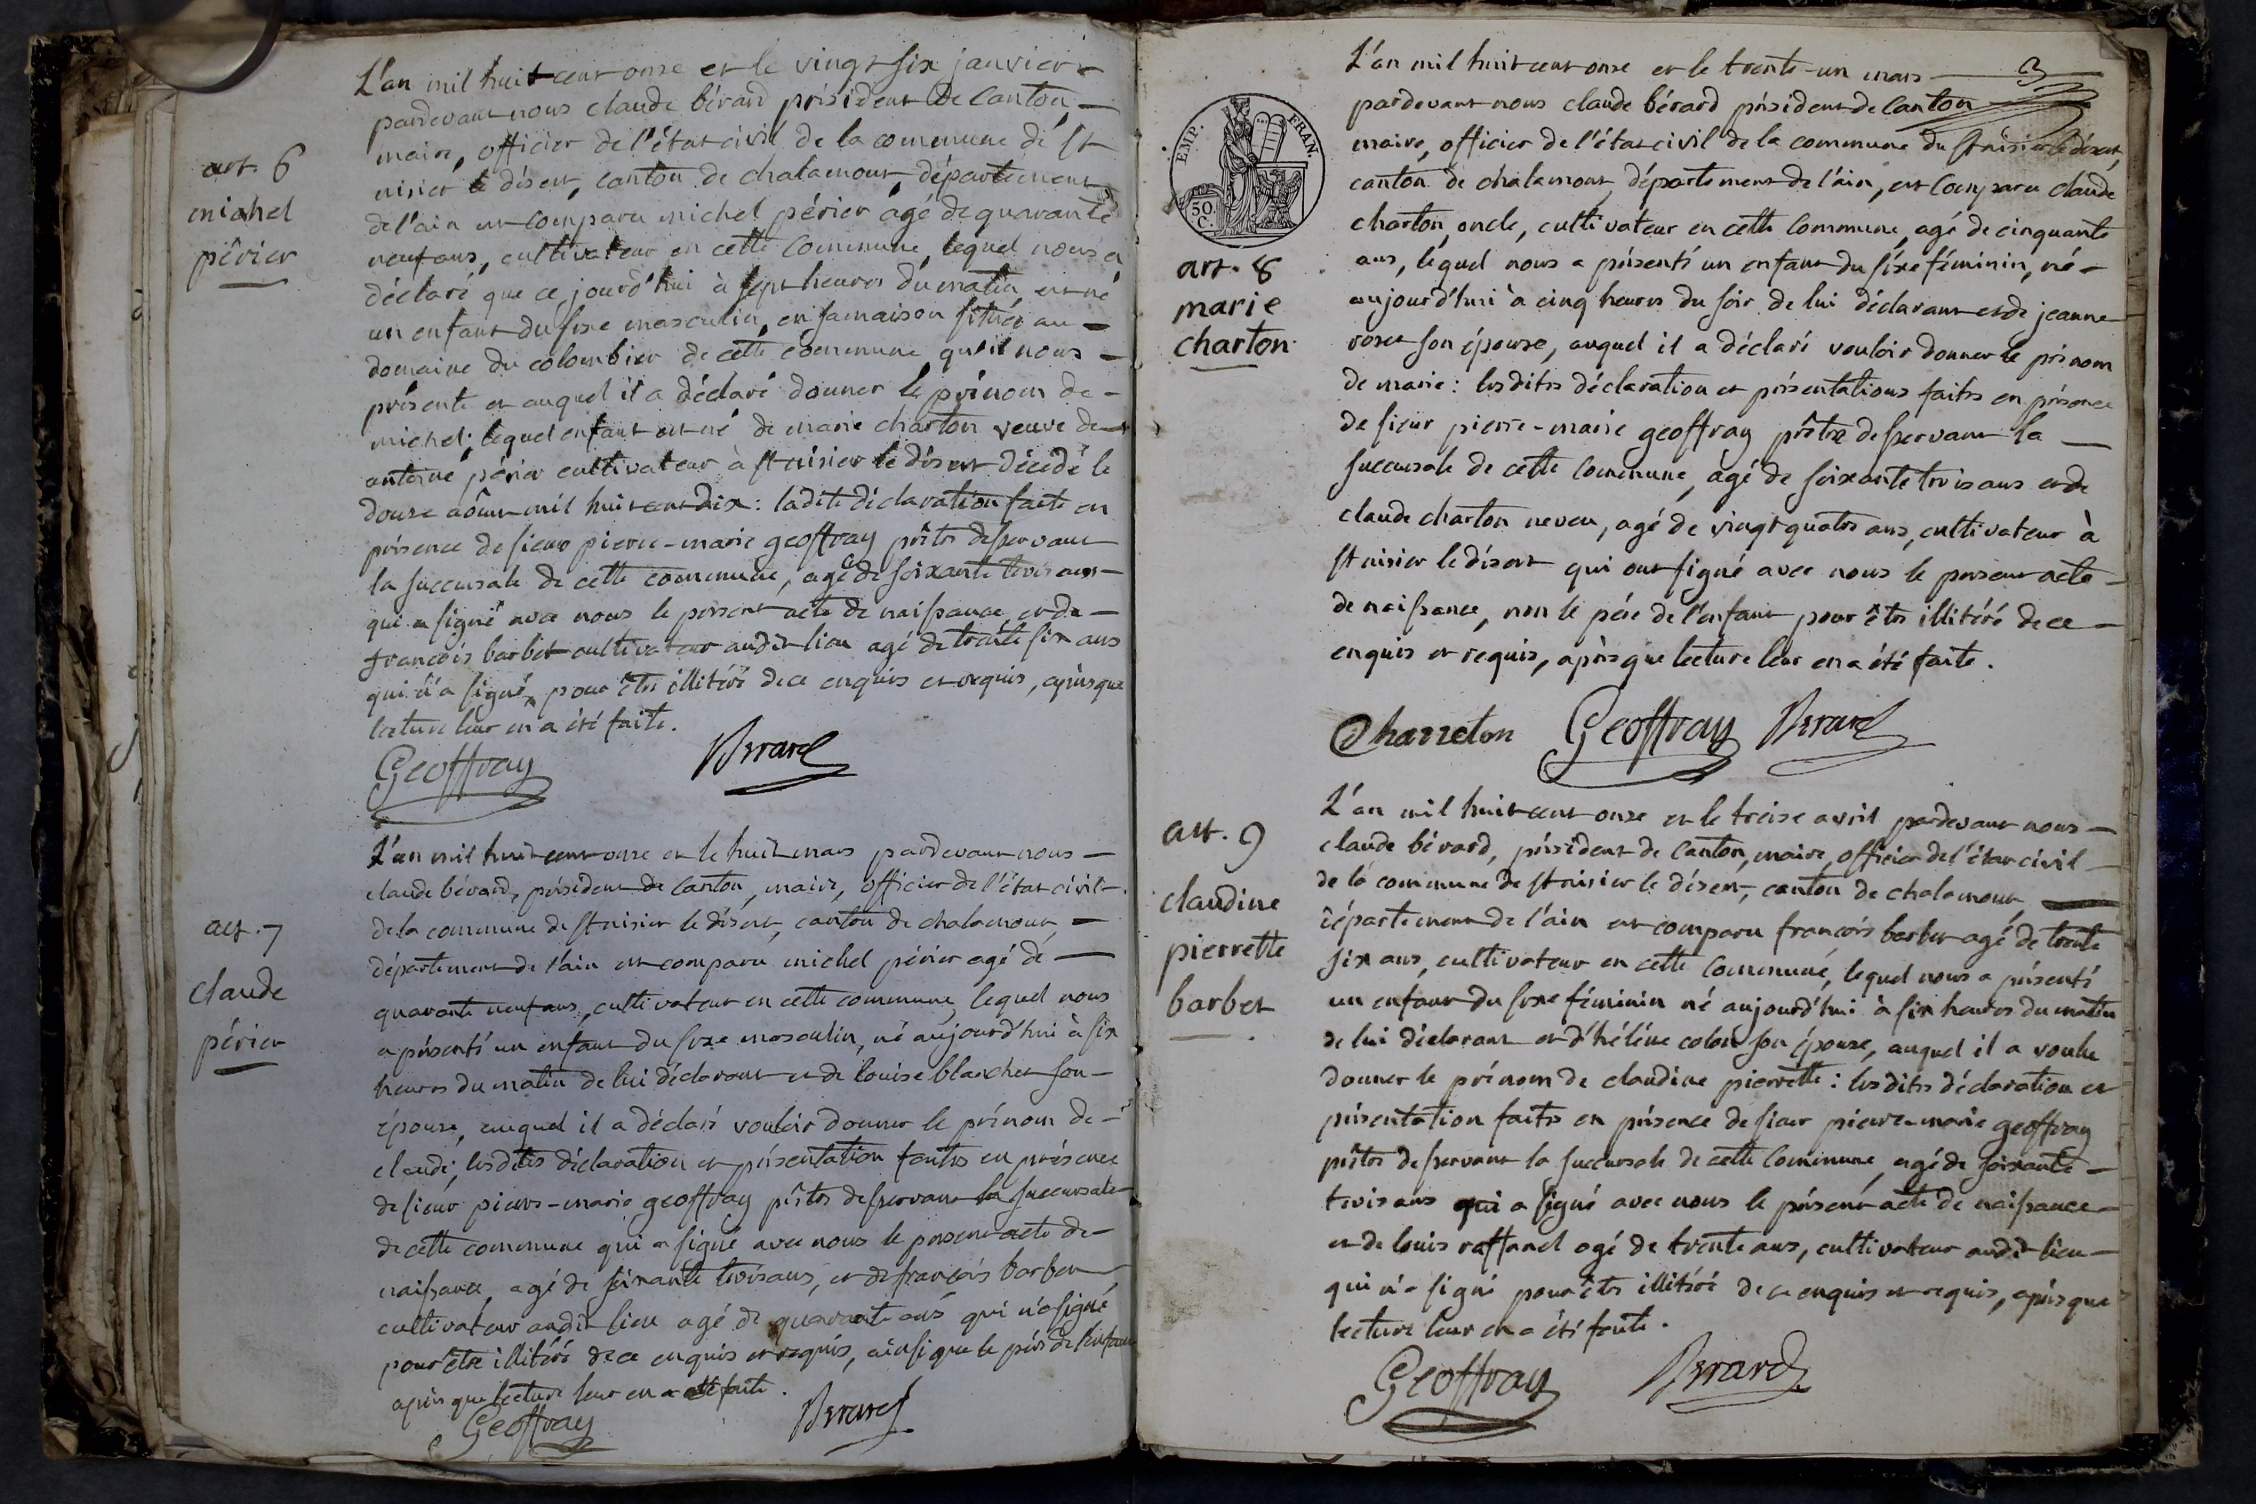 art. 6
michel
périer
L'an mil huit cent onze et le vingt six janvier
pardevant nous claude bérard président de Canton,
maire, officier de l'état civil de la commune de st
nisier le désert, canton de chalamont, département
de l'ain est comparu michel périer agé de quarante
neuf ans, cultivateur en cette commune, lequel nous a
déclaré que ce jourd'hui à sept heures du matin est né
un enfant du sexe masculin, en sa maison située au
domaine du colombier de cette commune qu'il nous
présente et auquel il a déclaré donner le prénom de
michel; lequel enfant est né de marie charton veuve de
antoine périer cultivateur à st nisier le désert décédé le
douze août mil huit cent dix: ladite déclaration faite en
présence de sieur pierre-marie geoffray prêtre desservant
la succursale de cette commune, agé de soixante trois ans
qui a signé avec nous le présent acte de naissance, et de
francois barbet cultivateur audit lieu agé de trente six ans
qui n'a signé, pour être illitéré de ce enquis et requis, après que
lecture leur en a été faite.
Geoffray Bérard
art. 7
claude
périer
L'an mil huit cent onze et le huit mars pardevant nous
claude bérard, président de Canton, maire, officier de l'état civil
de la commune de st nisier le désert, canton de chalamont,
département de l'ain est comparu michel périer agé de
quarante neuf ans, cultivateur en cette commune, lequel nous
a présenté un enfant du sexe masculin, né aujourd'hui à six
heures du matin de lui déclarant et de louise blanchet son
épouse, auquel il a déclaré vouloir donner le prénom de
claude; lesdites déclaration et présentation faites en présence
de sieur pierre-marie geoffray prêtre desservant la succursale
de cette commune qui a signé avec nous le présent acte de
naissance, agé de soixante trois ans, et de françois barbet
cultivateur audit lieu agé de quarante ans qui n'a signé
pour être illitéré de ce enquis et requis, ainsi que le père de l'enfant
après que lecture leur en a été faite.
Geoffray Bérard
3
EMP. FRAN.
50.
C.
art. 8
marie
charton
L'an mil huit cent onze et le trente-un mars
pardevant nous claude bérard président de Canton
maire, officier de l'état civil de la commune du st nisier le désert,
canton de chalamont, département de l'ain, est comparu claude
charton, oncle, cultivateur en cette commune, agé de cinquante
ans, lequel nous a présenté un enfant du sexe féminin, né
aujourd'hui à cinq heures du soir de lui déclarant et de jeanne
roset son épouse, auquel il a déclaré vouloir donner le prénom
de marie: lesdites déclaration et présentations faites en présence
de sieur pierre-marie geoffray prêtre desservant la
succursale de cette commune, agé de soixante trois ans et de
claude charton neveu, agé de vingt quatre ans, cultivateur à
st nisier le désert qui ont signé avec nous le present acte
de naissance, non le père de l'enfant pour être illitéré de ce
enquis et requis, après que lecture leur en a été faite.
Charreton Geoffray Bérard
art. 9
claudine
pierrette
barbet
L'an mil huit cent onze et le treize avril pardevant nous
claude bérard, président de Canton, maire, officier de l'état civil
de la commune de st nisier le désert, canton de chalamont,
département de l'ain est comparu francois barbet agé de trente
six ans, cultivateur en cette commune, lequel nous a présenté
un enfant du sexe féminin né aujourd'hui à six heures du matin
de lui déclarant et d'hélène colon son épouse, auquel il a voulu
donner le prénom de claudine pierrette: lesdites déclaration et
présentation faites en présence de sieur pierre-marie geoffray
prêtre desservant la succursale de cette commune, agé de soixante
trois ans qui a signé avec nous le présent acte de naissance
et de louis raffanel agé de trente ans, cultivateur audit lieu
qui n'a signé pour être illitéré de ce enquis et requis, après que
lecture leur en a été faite.
Geoffray Bérard